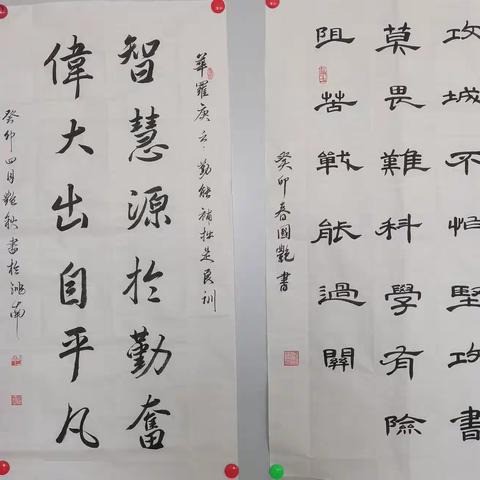 攻城不怕堅攻書
莫畏難科學有險
阻苦戰能過關
癸卯春國艷書
華羅庚云：勤能補拙是良訓
智慧源於勤奮
偉大出自平凡
癸卯四月書於洮南